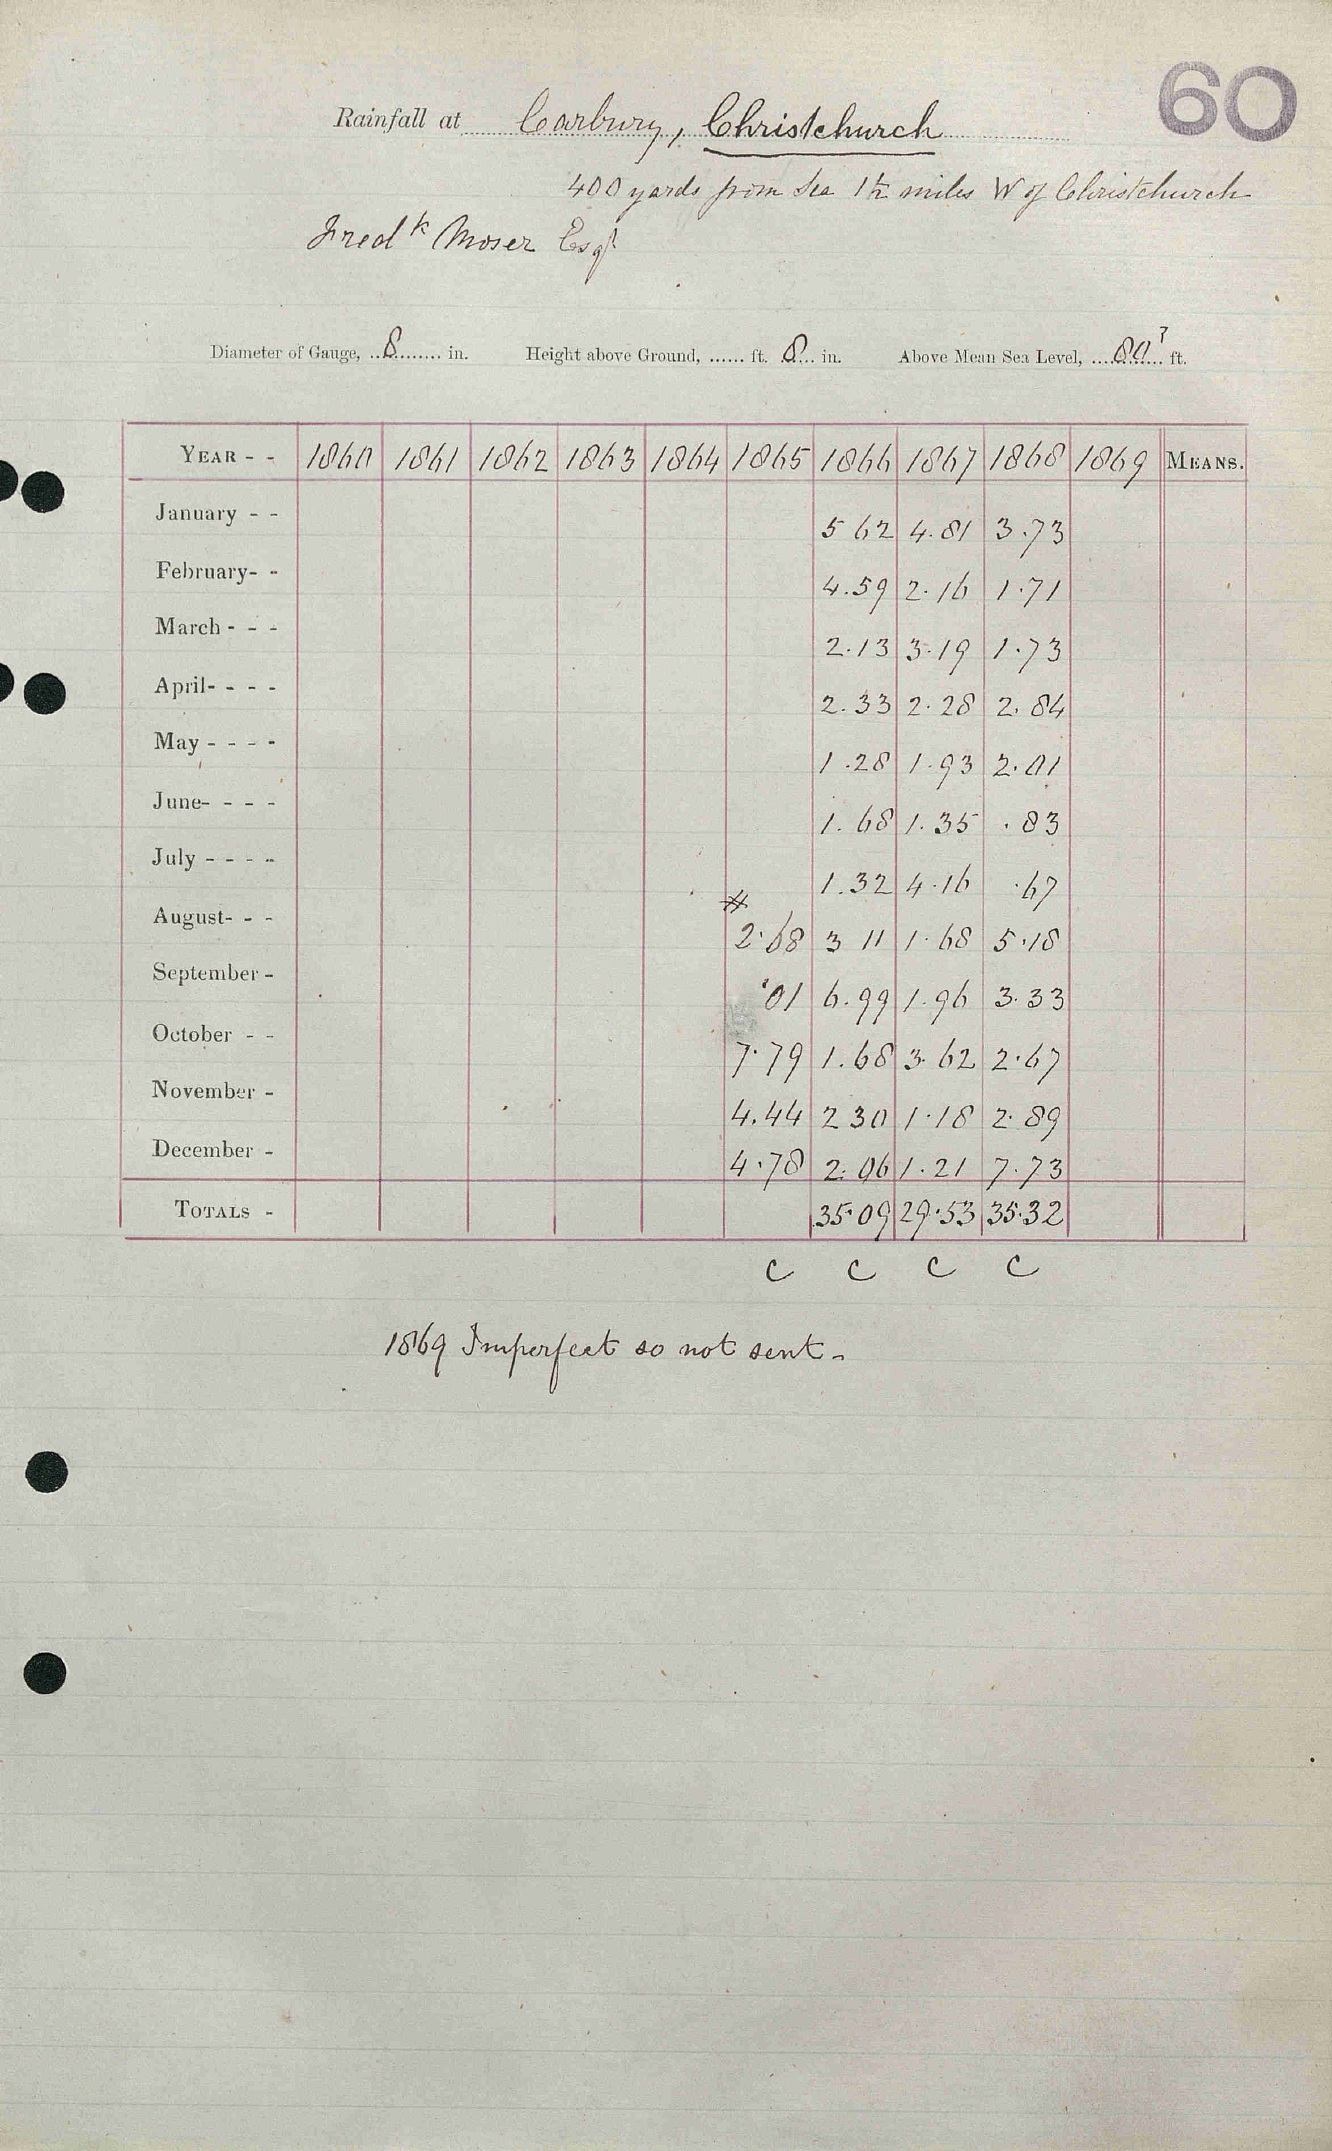 60
Rainfall at Carbury, Christchurch
400 yards from Sea 1½ miles W of Christchurch
Fredk Moser Esqr
Diameter of Gauge, 8 in. Height above Ground, ...... ft. 8 in. Above Mean Sea Level, 80? ft.
YEAR - - 1860 1861 1862 1863 1864 1865 1866 1867 1868 1869 MEANS.
January - - 5 62 4.81 3.73
February- - 4.59 2.16 1.71
March - - - 2.13 3.19 1.73
April- - - - 2.33 2.28 2.84
May - - - - 1.28 1.93 2.01
June- - - - 1.68 1.35 .83
July - - - - 1.32 4.16 .67
August- - - # 2.68 3 11 1.68 5.18
September - .01 6.99 1.96 3.33
October - - 7.79 1.68 3.62 2.67
November - 4.44 2 30 1.18 2.89
December - 4.78 2.06 1.21 7.73
TOTALS - 35.09 29.53 35.32
C C C C
1869 Imperfect so not sent -